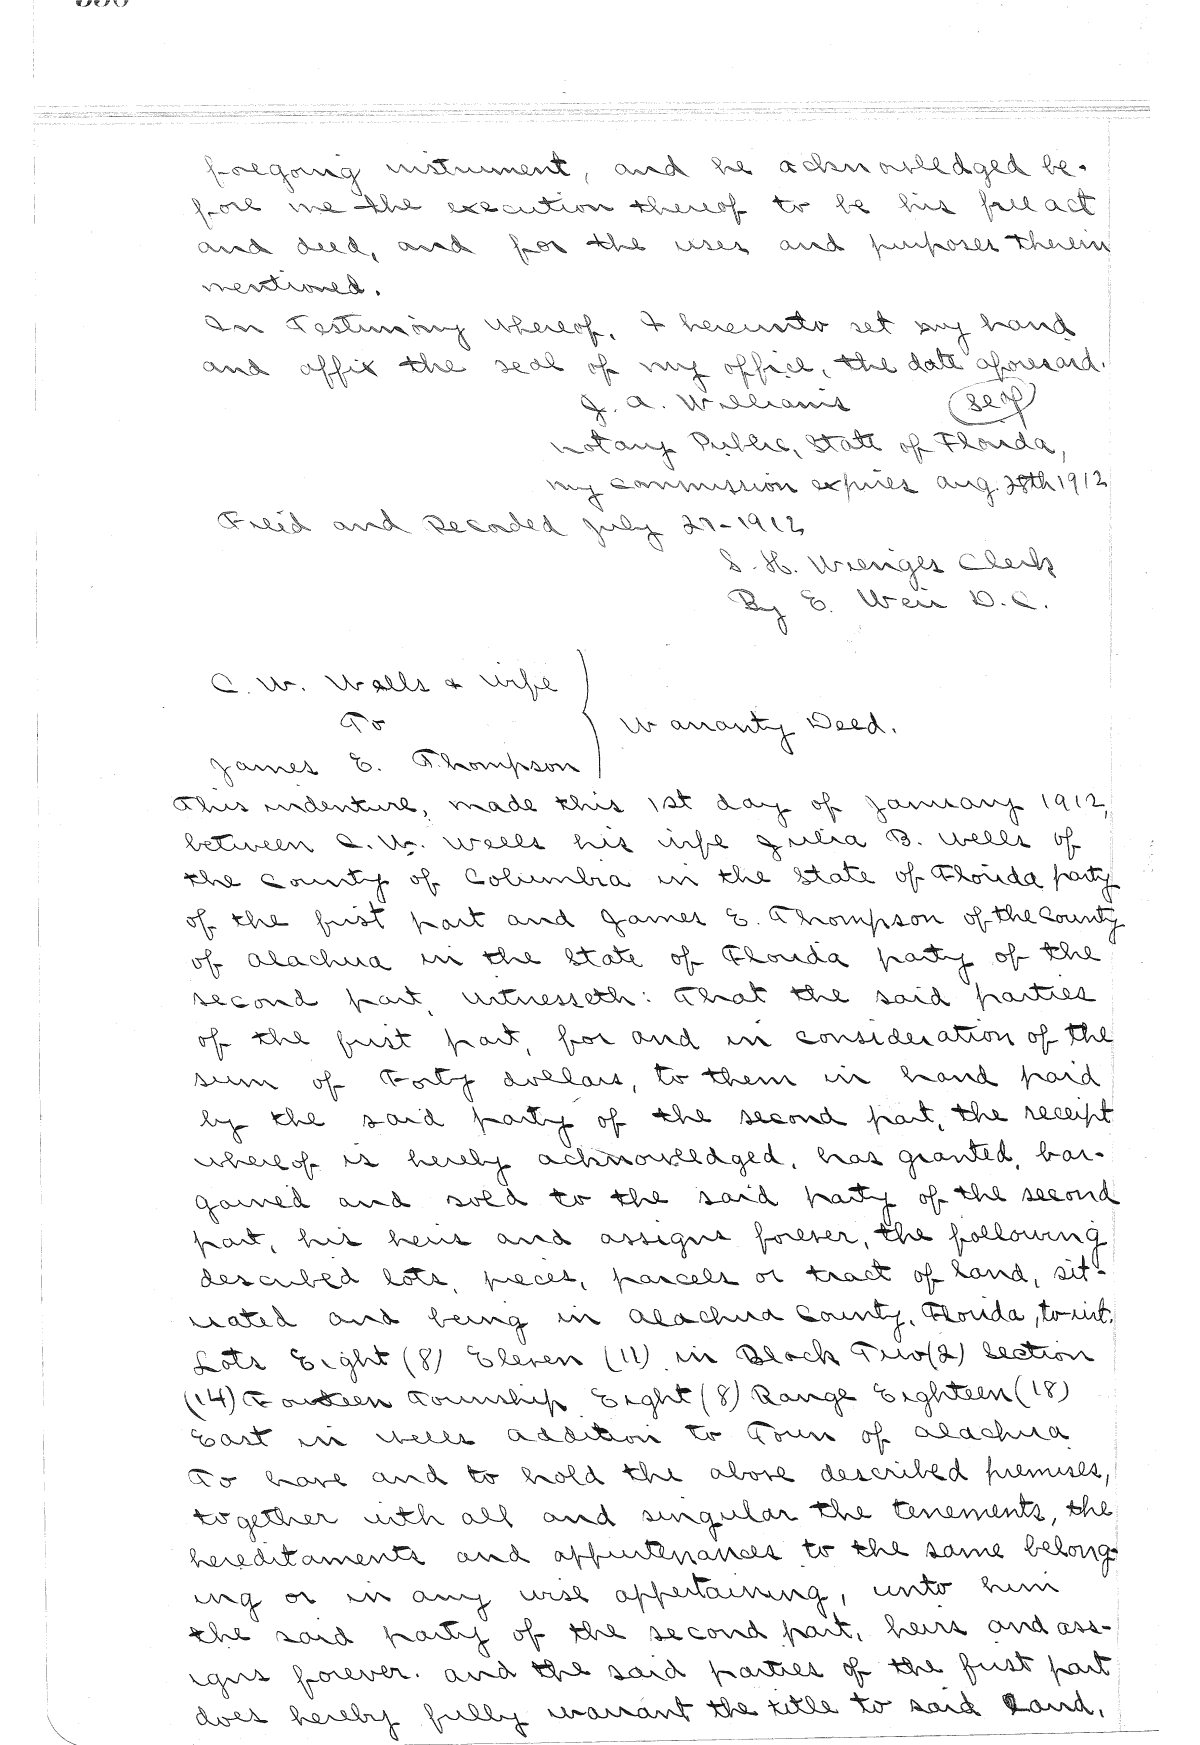 foregoing instrument, and he acknowledged be-
fore me the execution thereof to be his free act
and deed, and for the uses and purposes therein
mentioned.
In Testimony whereof, I hereunto set my hand
and affix the seal of my office, the date aforesaid.
J. A. Williams (Seal)
Notary Public, State of Florida,
my commission expires Aug. 28th 1912
Filed and Recorded July 27-1912
S. H. Wienges Clerk
By E. Weir D.C.
C. W. Wells & Wife
To
Warranty Deed.
James E. Thompson
This indenture, made this 1st day of January 1912,
between C. W. Wells his wife Julia B. Wells of
the County of Columbia in the State of Florida party
of the first part and James E. Thompson of the County
of Alachua in the State of Florida party of the
second part, witnesseth: That the said parties
of the first part, for and in consideration of the
sum of Forty dollars, to them in hand paid
by the said party of the second part, the receipt
whereof is hereby acknowledged, has granted, bar-
gained and sold to the said party of the second
part, his heirs and assigns forever, the following
described lots, pieces, parcels or tract of land, sit-
uated and being in Alachua County, Florida, to-wit.
Lots Eight (8) Eleven (11) in Block Two (2) Section
(14) Fourteen Township Eight (8) Range Eighteen (18)
East in Wells addition to Town of Alachua
To have and to hold the above described premises,
together with all and singular the tenements, the
hereditaments and appurtenances to the same belong-
ing or in any wise appertaining, unto him
the said party of the second part, heirs and ass-
igns forever. and the said parties of the first part
does hereby fully warrant the title to said Land,